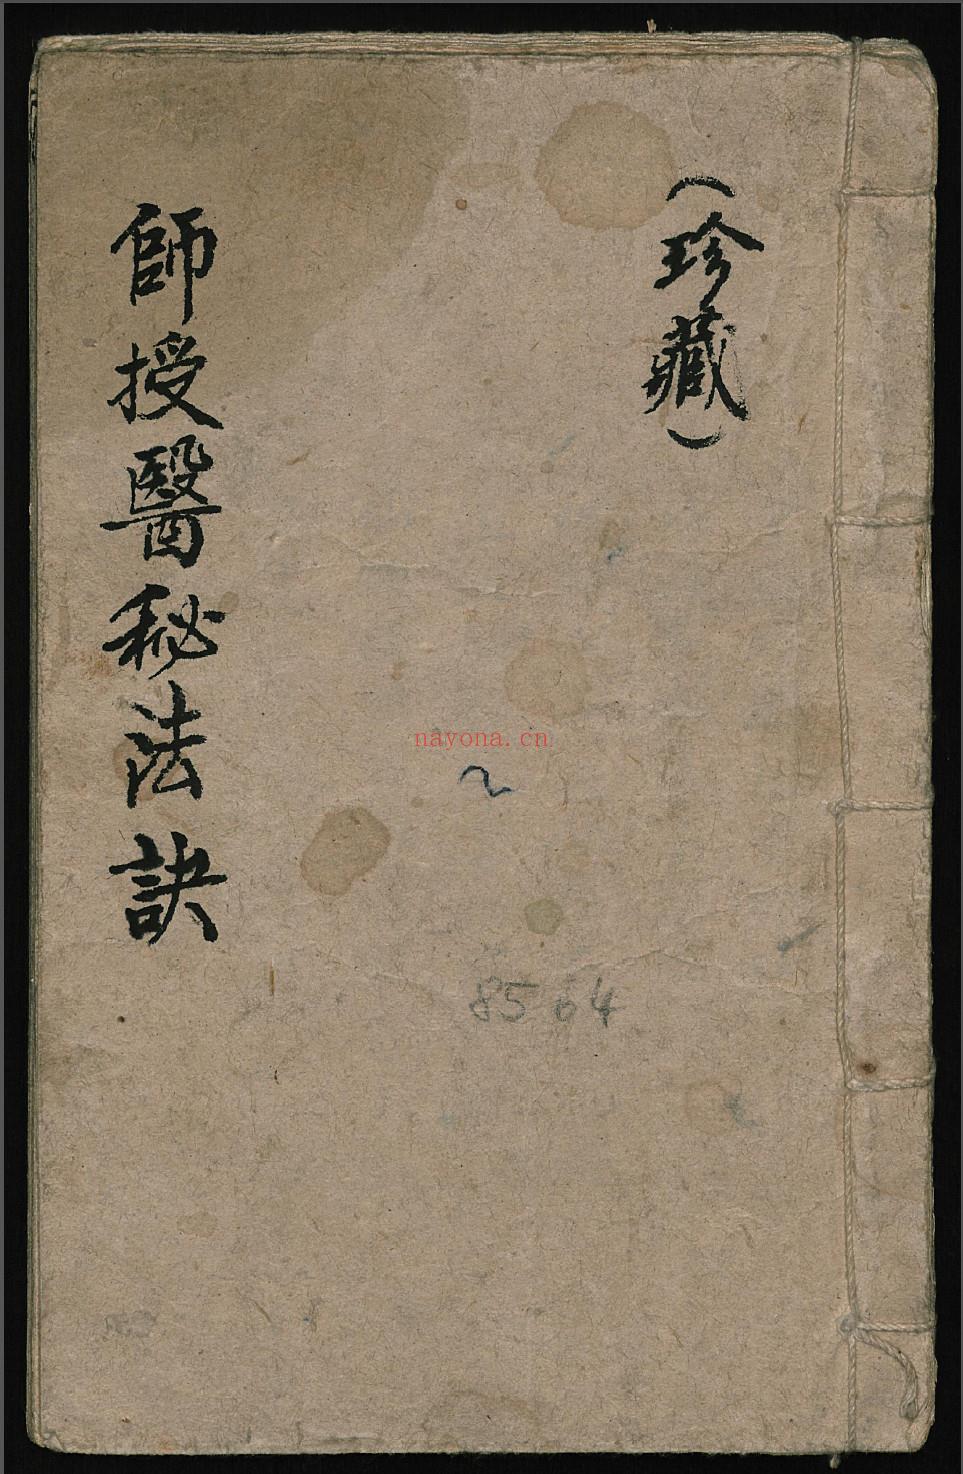 （珍藏）
師授醫秘法訣
nayona.cn
8564